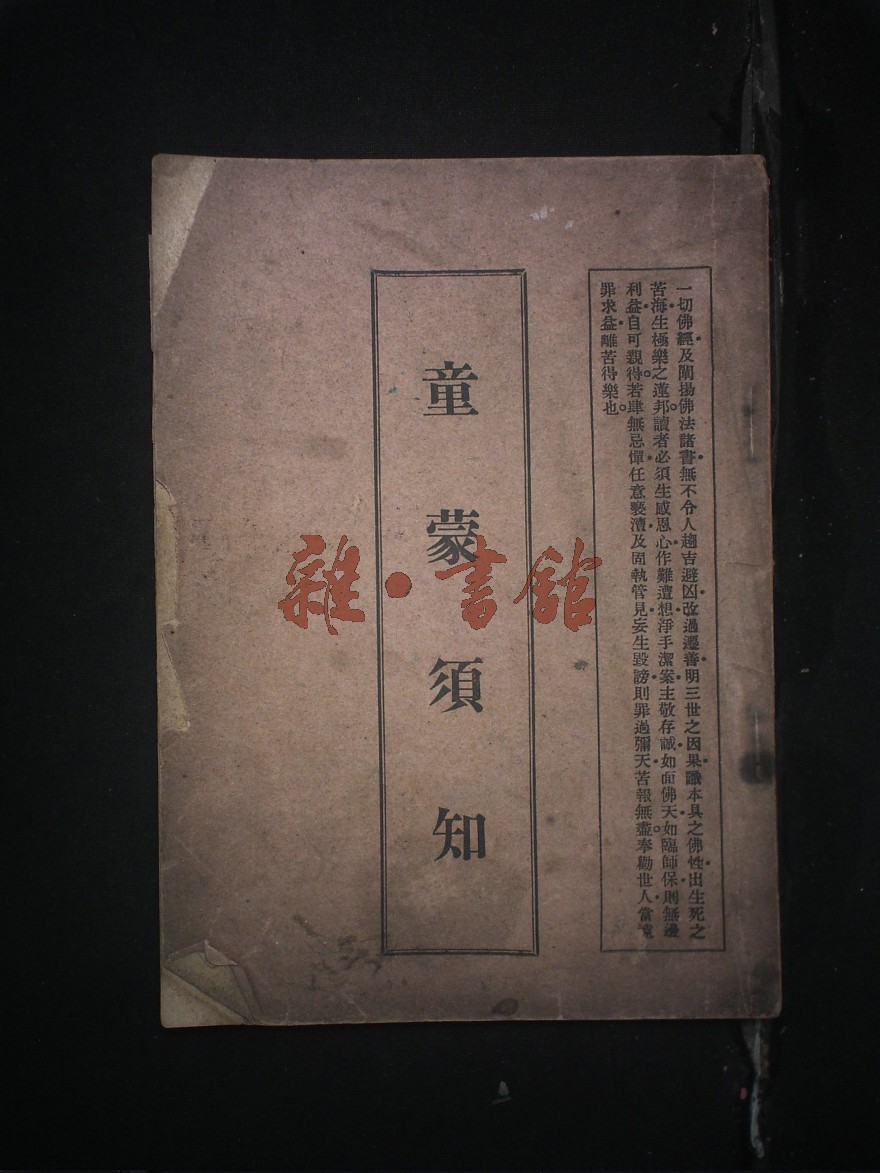 一切佛經·及闡揚佛法諸書·無不令人趨吉避凶·改過遷善·明三世之因果·識本具之佛性·出生死之
苦海·生極樂之蓮邦。讀者必須生感恩心·作難遭想·淨手潔案·主敬存誠·如面佛天·如臨師保·則無邊
利益·自可親得。若肆無忌憚·任意褻瀆·及固執管見·妄生毀謗·則罪過彌天·苦報無盡。奉勸世人·當遠
罪求益·離苦得樂也。
童蒙須知
雜·書館